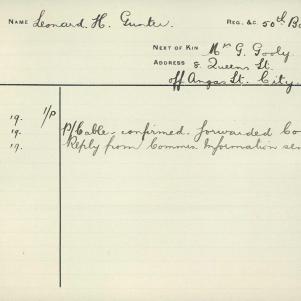 NAME Leonard H. Gunter. REG. &C. 50th Ba
NEXT OF KIN Mrs G. Gooly
ADDRESS 8. Queens St.
off Angas St. City.
1/P
19. P/Cable confirmed. forwarded Co
19. Reply from Commis. Information sen
19.